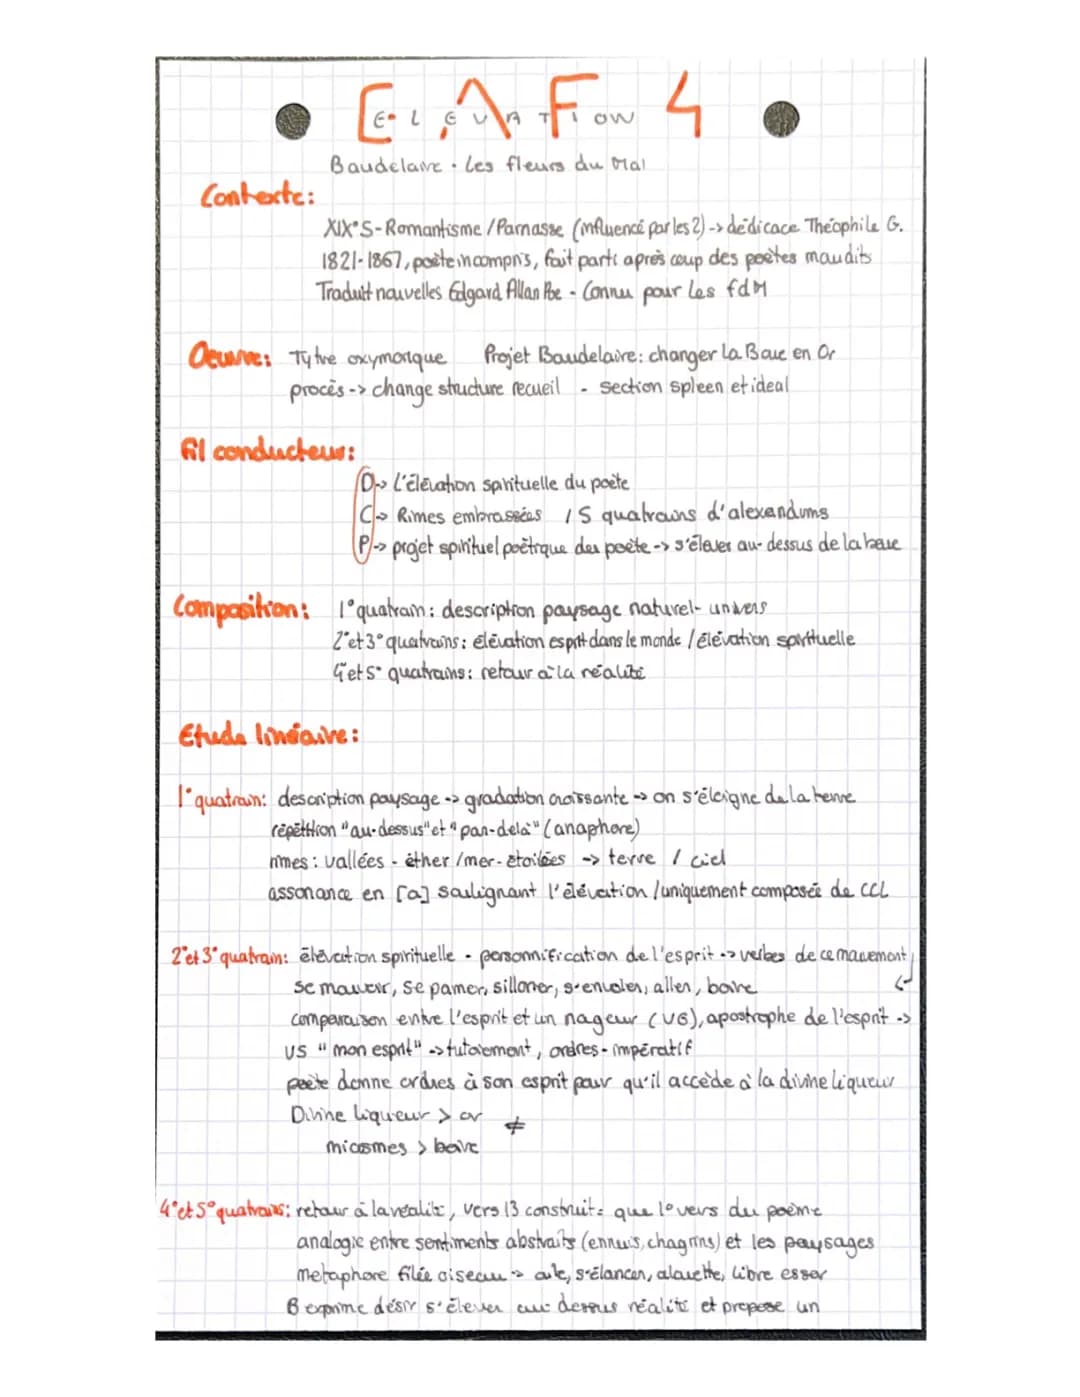 EAF 4
ELEVATION
Baudelaire • Les fleurs du Mal
Contexte:
XIX°S - Romantisme / Parnasse (influencé par les 2) -> dédicace Théophile G.
1821-1867, poète incompris, fait parti après coup des poètes maudits
Traduit nouvelles Edgard Allan Poe - Connu pour Les fdM
Oeuvre: Tytre oxymorique Projet Baudelaire: changer la Boue en Or
procès -> change structure recueil - section spleen et ideal
Fil conducteur:
D -> L'élévation spirituelle du poète
C -> Rimes embrassées / 5 quatrains d'alexandrins
P -> projet spirituel poétique du poète -> s'élever au-dessus de la boue
Composition: 1° quatrain: description paysage naturel - univers
2° et 3° quatrains: élévation esprit dans le monde / élévation spirituelle
4° et 5° quatrains: retour à la réalité
Etude linéaire:
1° quatrain: description paysage -> gradation croissante -> on s'éloigne de la terre
répétition "au-dessus" et "par-delà" (anaphore)
rimes: vallées - éther / mer - étoilées -> terre / ciel
assonance en [a] soulignant l'élévation / uniquement composée de CCL
2° et 3° quatrain: élévation spirituelle - personnification de l'esprit -> verbes de ce mouvement,
se mouvoir, se pamer, sillonner, s'envoler, aller, boire
comparaison entre l'esprit et un nageur (V6), apostrophe de l'esprit ->
V5 "mon esprit" -> tutoiement, ordres - impératif
poète donne ordres à son esprit pour qu'il accède à la divine liqueur
Divine liqueur > or ≠
miasmes > boue
4° et 5° quatrains: retour à la réalité, vers 13 construit = que 1° vers du poème
analogie entre sentiments abstraits (ennuis, chagrins) et les paysages
métaphore filée oiseau -> aile, s'élancer, alouette, libre essor
B exprime désir s'élever au dessus réalité et propose un